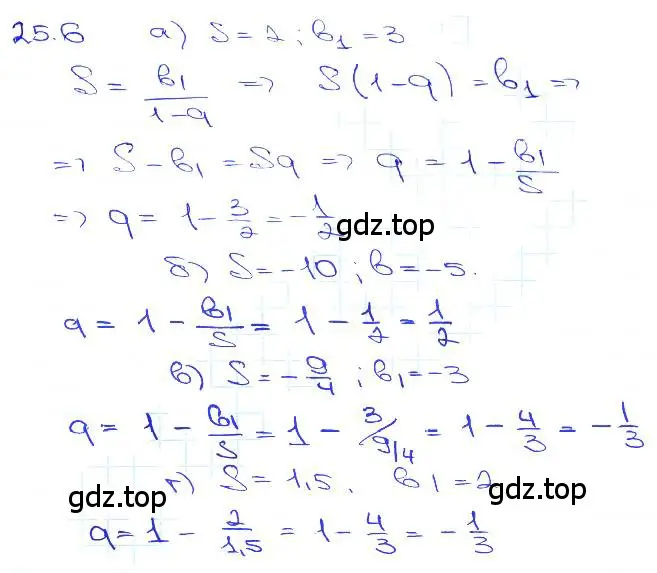 25.6 а) S = 2 ; b₁ = 3
S = b₁/(1-q) => S(1-q) = b₁ =>
=> S - b₁ = Sq => q = 1 - b₁/S
=> q = 1 - 3/2 = - 1/2
gdz.top
б) S = -10 ; b = -5.
q = 1 - b₁/S = 1 - 1/2 = 1/2
в) S = - 9/4 ; b₁ = -3
q = 1 - b₁/S = 1 - 3/9/4 = 1 - 4/3 = - 1/3
gdz.top
г) S = 1,5. b₁ = 2
q = 1 - 2/1,5 = 1 - 4/3 = - 1/3